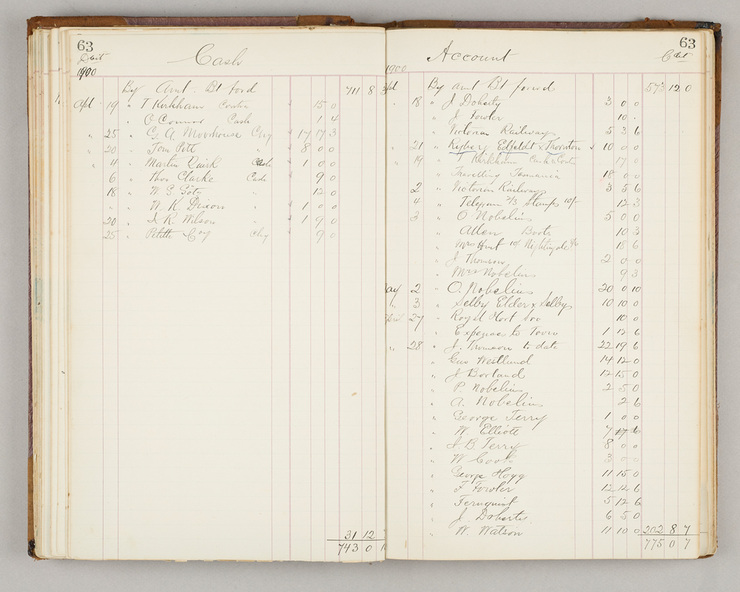 63
Cash
1900
By Amt Bt ford 711 8 3
Apl 19 " T Kerkham Contra " 15 0
" O Connor Cash 1 4
" 25 " G A Moorhouse Chq " 17 17 3
" 20 " Tom Pott " " 8 0 0
" 4 " Martin Quirk Cash " 1 0 0
6 " Thos Clarke Cash " 9 0
18 " W G " 12 0
" " W K Dixon " " 1 0 0
" 20 " J R Wilson " " 1 9 0
" 25 " Petite Coy Chq 9 0
31 12
743 0
Account 63
1900
By amt Bt forward 573 12 0
18 " J Doherty 3 0 0
" J Fowler 10 -
" Victorian Railways 5 3 6
" 21 " & Thornton 10 0 0
" 19 " T Kerkham Cash & Contra 17 0
" Travelling Tasmania 18 0 0
2 " Victorian Railways 3 3 6
" 4 " Telegram 2/3 Stamps 10/- 12 3
3 " O Nobelius 5 0 0
" Allen Boots 10 3
" Mrs Hunt 10/ 18 6
" J Thomson 2 0 0
" Mrs Nobelius 9 3
May 2 " O. Nobelius 20 0 10
" 3 " Selby Elder & Selby 10 10 0
27 " Royal Hort Soc 10 0
" Expenses to Town 1 12 6
" 28 " J. Thomson to date 22 19 6
" Gus Westlund 14 12 0
" J Borland 12 15 0
" P Nobelius 2 5 0
" A. Nobelius 2 6
" George Terry 1 0 0
" W. Elliott 7 17 6
" J. B Terry 8 0 0
" W Cook 3 0 0
" George Hogg 11 15 0
" F Fowler 12 12 6
" Fernquist 5 12 6
" J. Doherty 6 5 0
" W. Watson 11 10 0 202 8 7
775 0 7